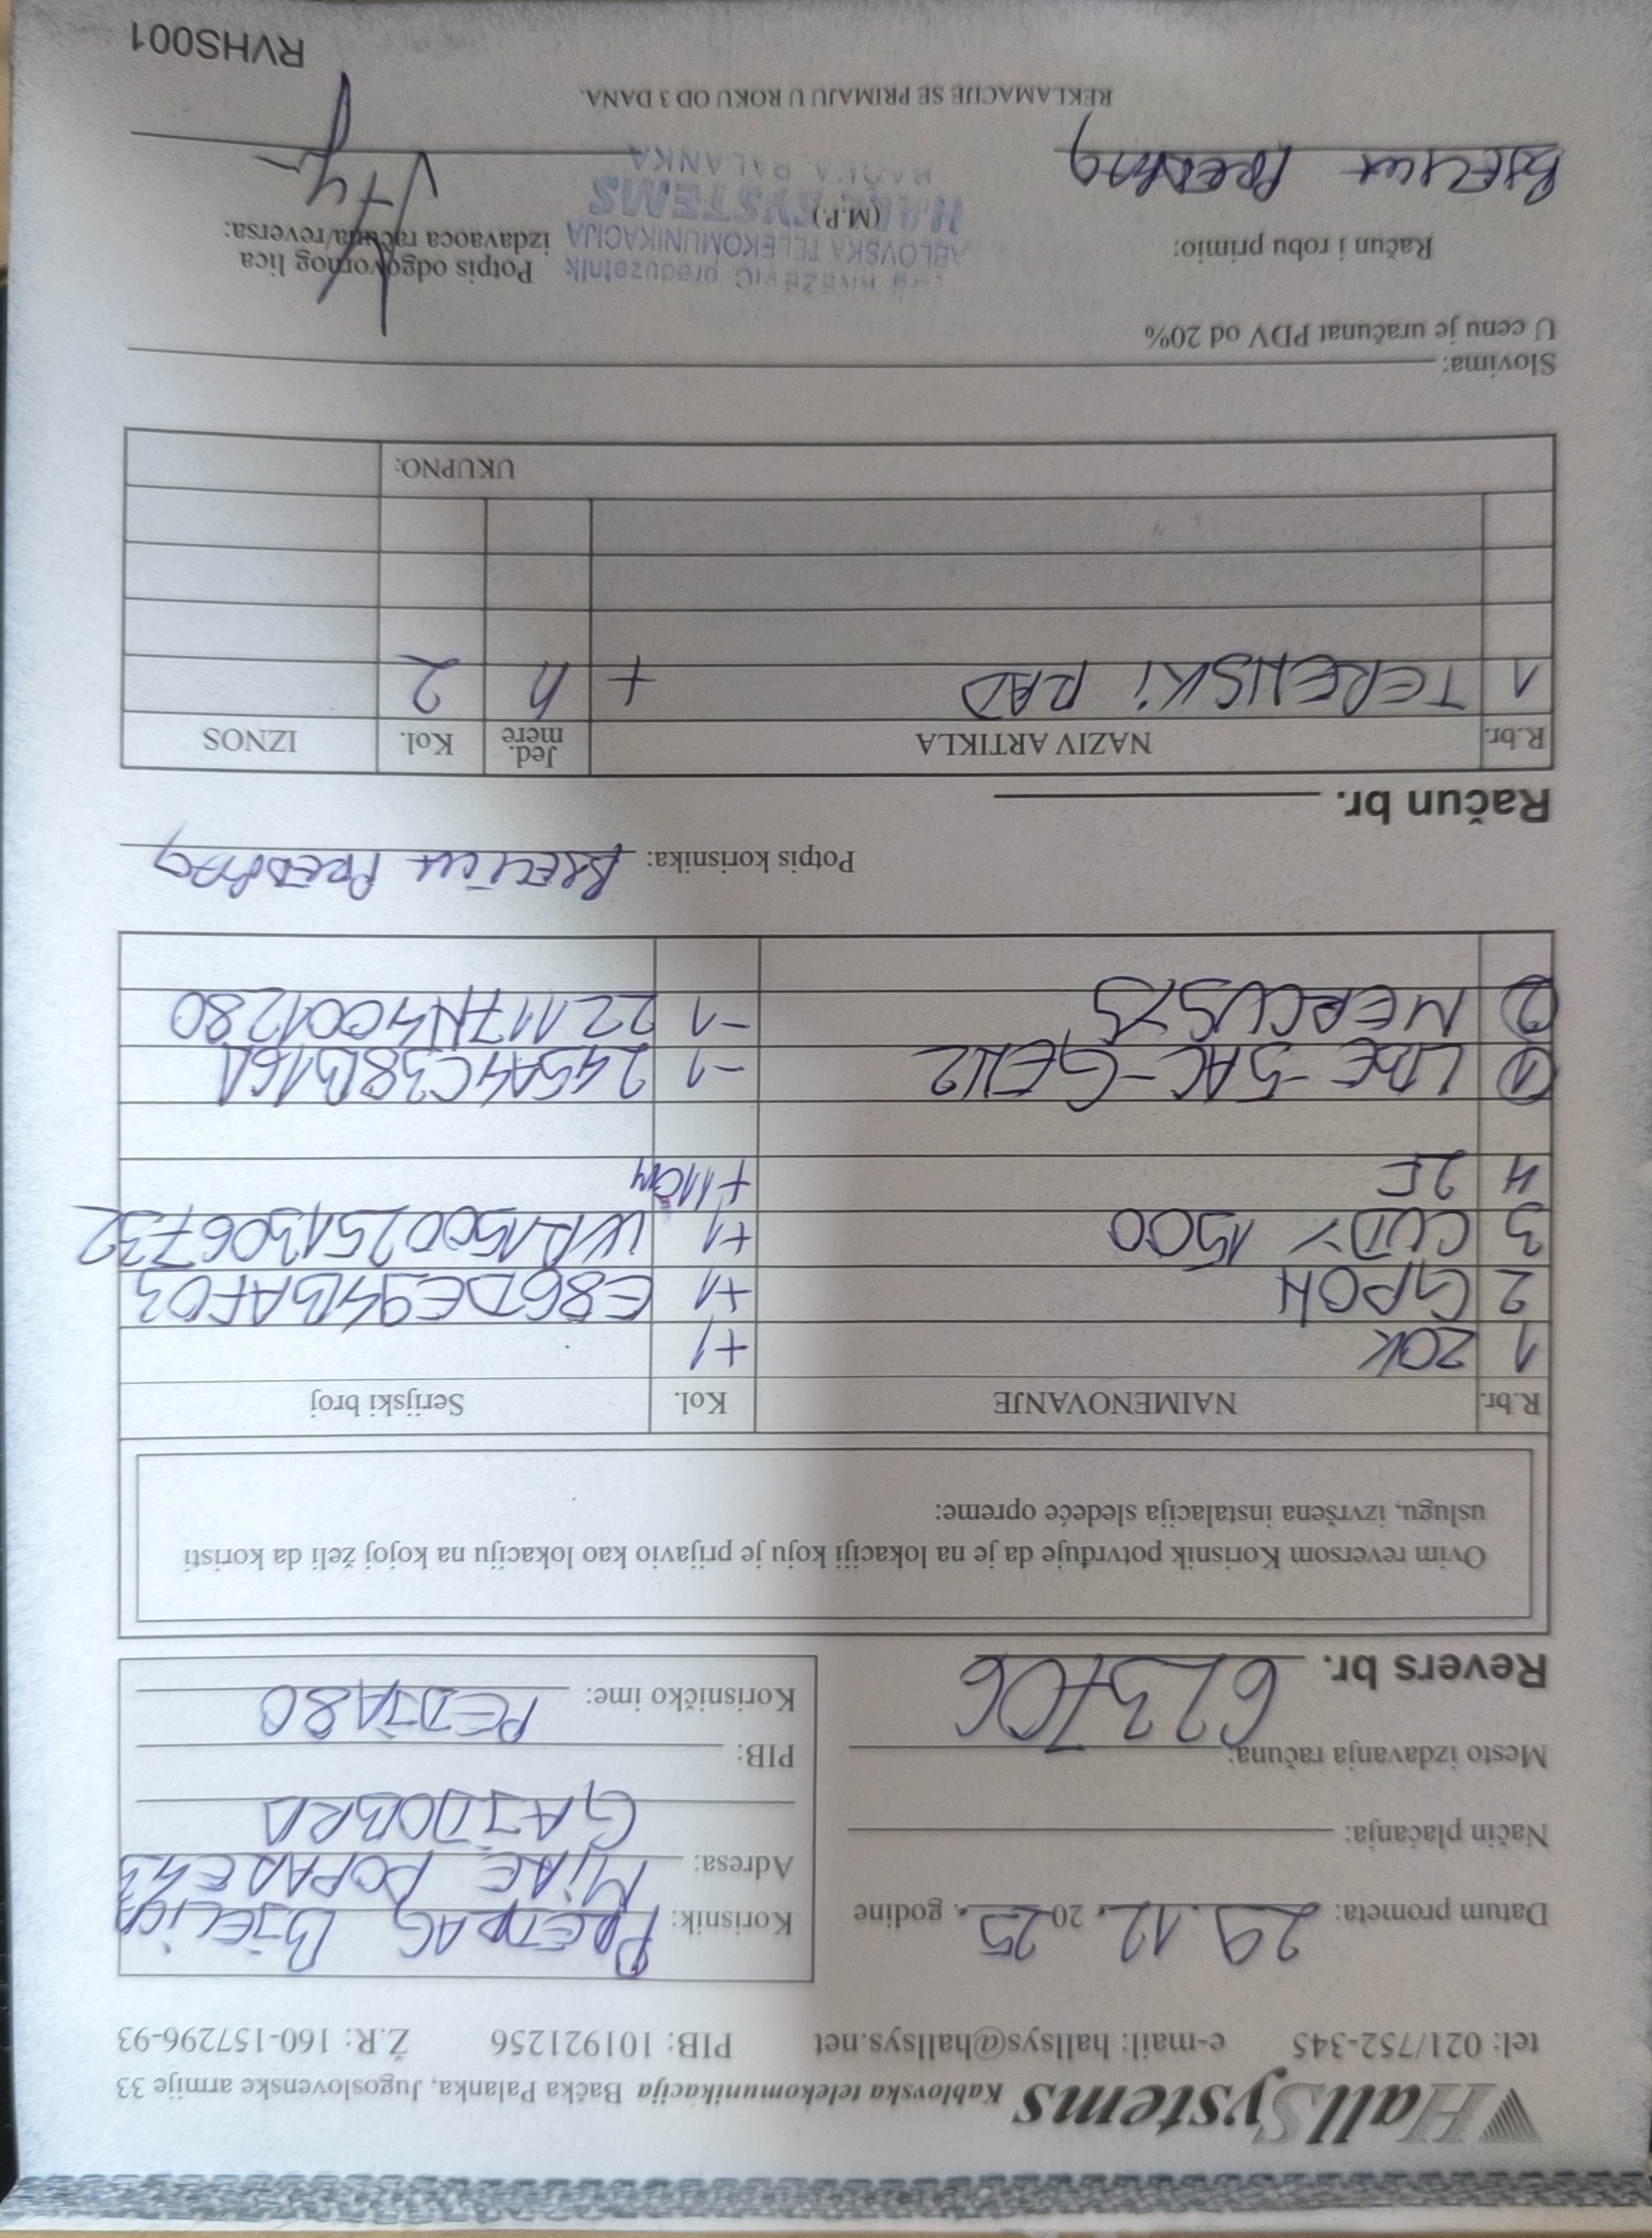 HallSystems Kablovska telekomunikacija Bačka Palanka, Jugoslovenske armije 33
tel: 021/752-345 e-mail: hallsys@hallsys.net PIB: 101921256 Ž.R: 160-157296-93
Datum prometa: 29.12. 2025. godine
Način plaćanja:
Mesto izdavanja računa:
Revers br. 623706
Korisnik: PREDRAG BJELICA
Adresa: MILAE POPARE 43
GAJDOBRA
PIB:
Korisničko ime: PEDJA80
Ovim reversom Korisnik potvrđuje da je na lokaciji koju je prijavio kao lokaciju na kojoj želi da koristi
uslugu, izvršena instalacija sledeće opreme:
R.br. NAIMENOVANJE Kol. Serijski broj
1 ZOK +1
2 GPON +1 E86DE94BAF03
3 CUDY 1500 +1 WR1500251306732
4 2F +110m
1 LBE-5AC-GEN2 -1 245A4C38B16A
2 MERCUSYS -1 22117N4001280
Potpis korisnika: BJELICA PREDRAG
Račun br.
R.br. NAZIV ARTIKLA Jed. mere Kol. IZNOS
1 TERENSKI RAD + h 2
UKUPNO:
Slovima:
U cenu je uračunat PDV od 20%
Račun i robu primio:
BJELICA PREDRAG
KNEŽEVIĆ preduzetnik
KABLOVSKA TELEKOMUNIKACIJA
(M.P.)
HALL SYSTEMS
BAČKA PALANKA
Potpis odgovornog lica
izdavaoca računa/reversa:
REKLAMACIJE SE PRIMAJU U ROKU OD 3 DANA.
RVHS001